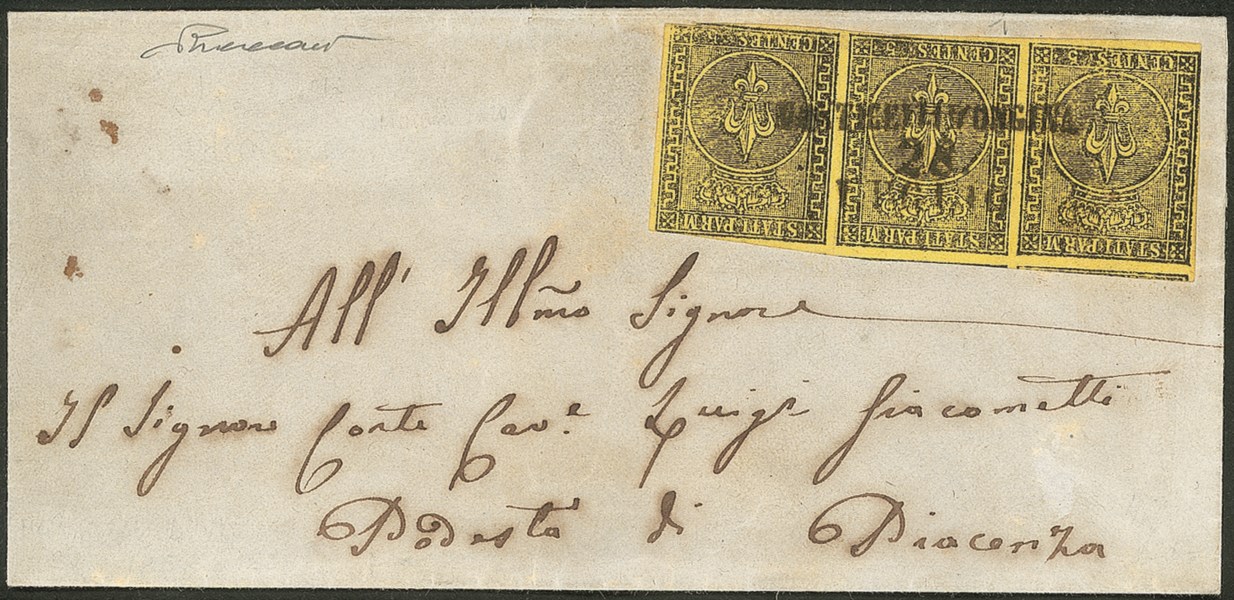 CENTES. 5
CENTES. 5
CENTES. 5
STATI PARM.
STATI PARM.
STATI PARM.
28
All' Illm̃o Signore
Il Signore Conte Cav.e Luigi Giacometti
Podestà di Piacenza